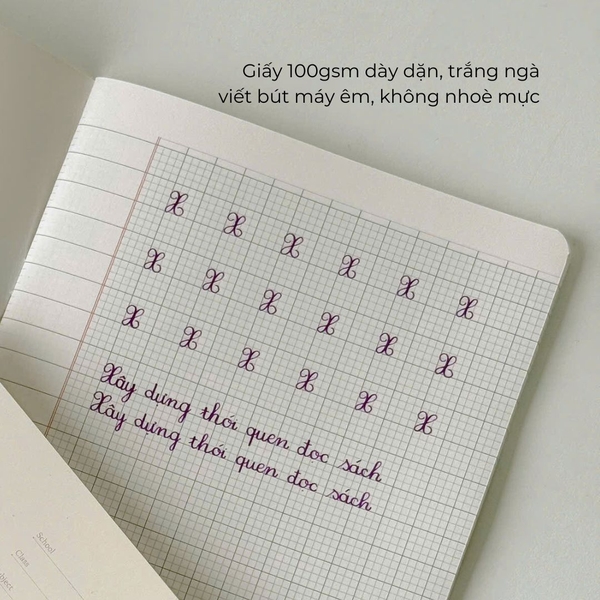 Giấy 100gsm dày dặn, trắng ngà
viết bút máy êm, không nhoè mực
X X X X X X
X X X X X X
X X X X X X
Xây dựng thói quen đọc sách
Xây dựng thói quen đọc sách
School
Class